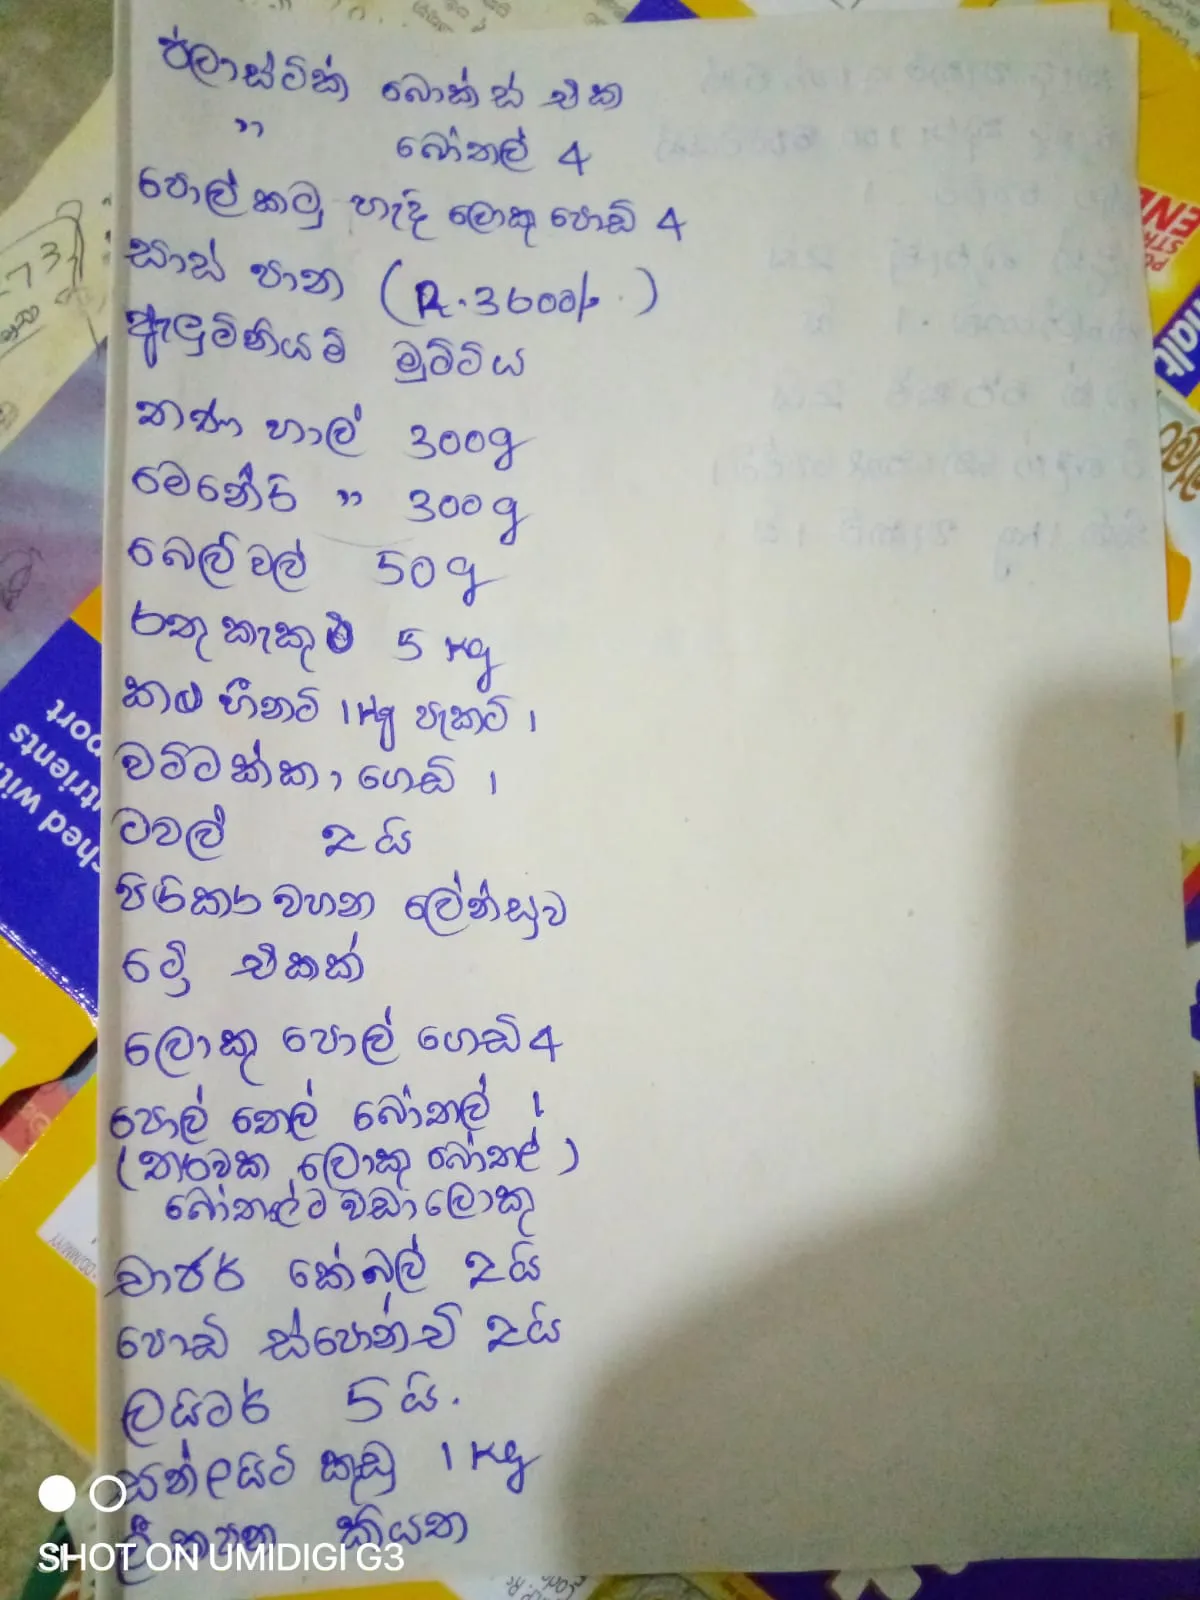 ප්ලාස්ටික් බොක්ස් එක
" බෝතල් 4
පොල්කටු හැදි ලොකු පොඩි 4
සාස් පාන (R.3600/-)
ඇලුමිනියම් මුට්ටිය
තණ හාල් 300g
මෙනේරි " 300g
බෙලිවල් 50g
රතු කැකුළු 5 kg
කළු හීනටි 1 kg පැකට් 1
වට්ටක්කා ගෙඩි 1
ටවල් 2යි
පිරිකර වහන ලේන්සුව
ට්‍රේ එකක්
ලොකු පොල් ගෙඩි 4
පොල් තෙල් බෝතල් 1
(තරවක ලොකු බෝතල්)
බෝතල්ට වඩා ලොකු
චාජර් කේබල් 2යි
පොඩි ස්පොන්චි 2යි
ලයිටර් 5යි.
සන්ලයිට් කුඩු 1 kg
ලී කපන කියත
SHOT ON UMIDIGI G3
733
END
malt
trients
port